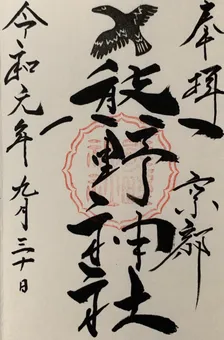 奉拝 京都
熊野神社
令和元年九月三十日